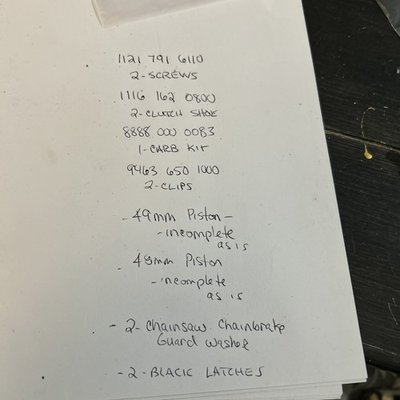 1121 791 6110
2-SCREWS
1116 162 0800
2-CLUTCH SHOE
8888 000 0083
1-CARB KIT
9463 650 1000
2-CLIPS
- 49mm Piston -
- incomplete
as is
- 48mm Piston
- incomplete
as is
- 2- Chainsaw Chainbrake
Guard Washer
- 2- BLACK LATCHES